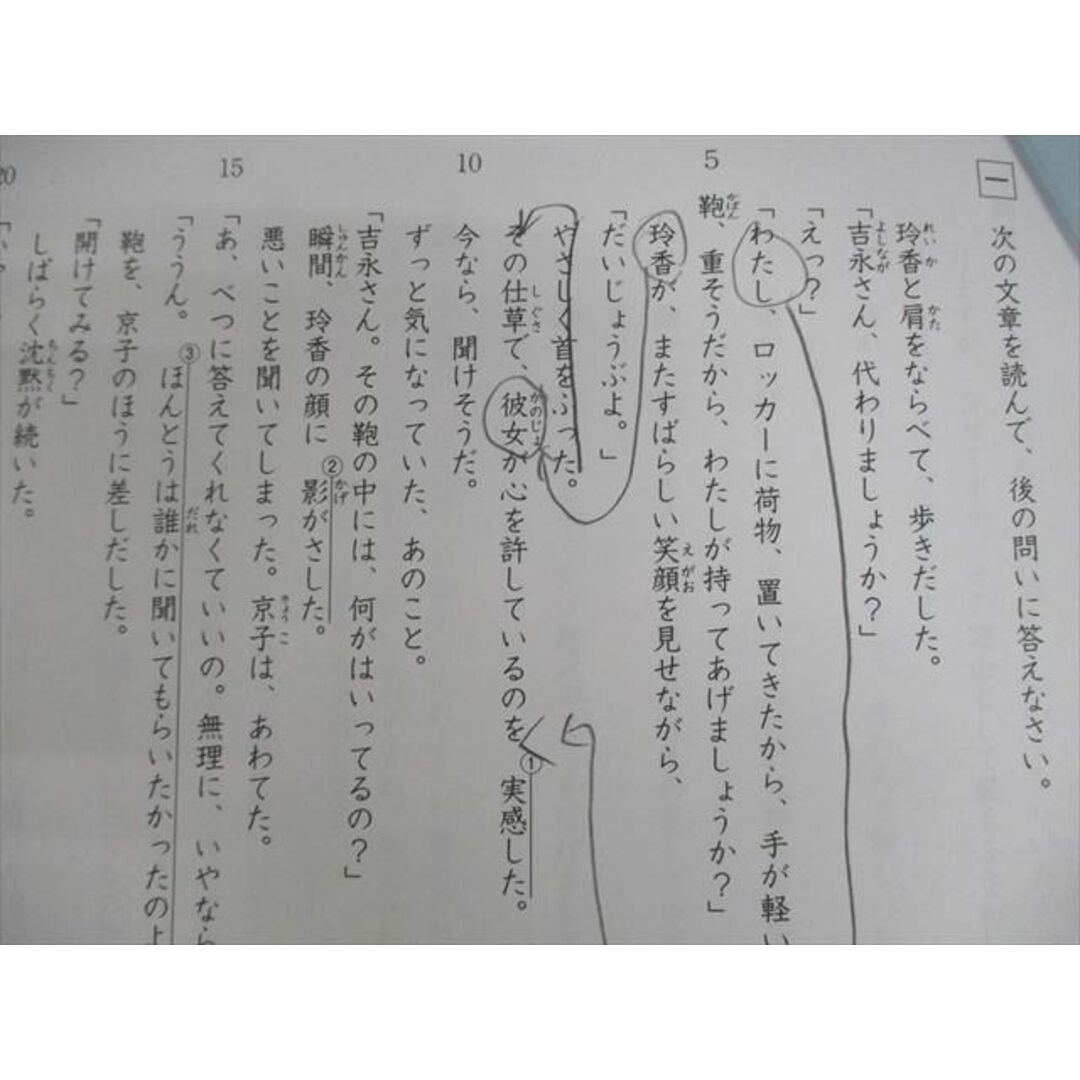 一
次の文章を読んで、後の問いに答えなさい。
玲香と肩をならべて、歩きだした。
れいか
かた
「吉永さん、代わりましょうか？」
よしなが
「えっ？」
「わたし、ロッカーに荷物、置いてきたから、手が軽い
5
鞄、重そうだから、わたしが持ってあげましょうか？」
かばん
玲香が、またすばらしい笑顔を見せながら、
えがお
「だいじょうぶよ。」
やさしく首をふった。
その仕草で、彼女が心を許しているのを①実感した。
しぐさ
かのじょ
10
今なら、聞けそうだ。
ずっと気になっていた、あのこと。
「吉永さん。その鞄の中には、何がはいってるの？」
瞬間、玲香の顔に②影がさした。
しゅんかん
かげ
悪いことを聞いてしまった。京子は、あわてた。
きょうこ
15
「あ、べつに答えてくれなくていいの。無理に、いやなら
「ううん。③ほんとうは誰かに聞いてもらいたかったのよ
だれ
鞄を、京子のほうに差しだした。
「開けてみる？」
しばらく沈黙が続いた。
ちんもく